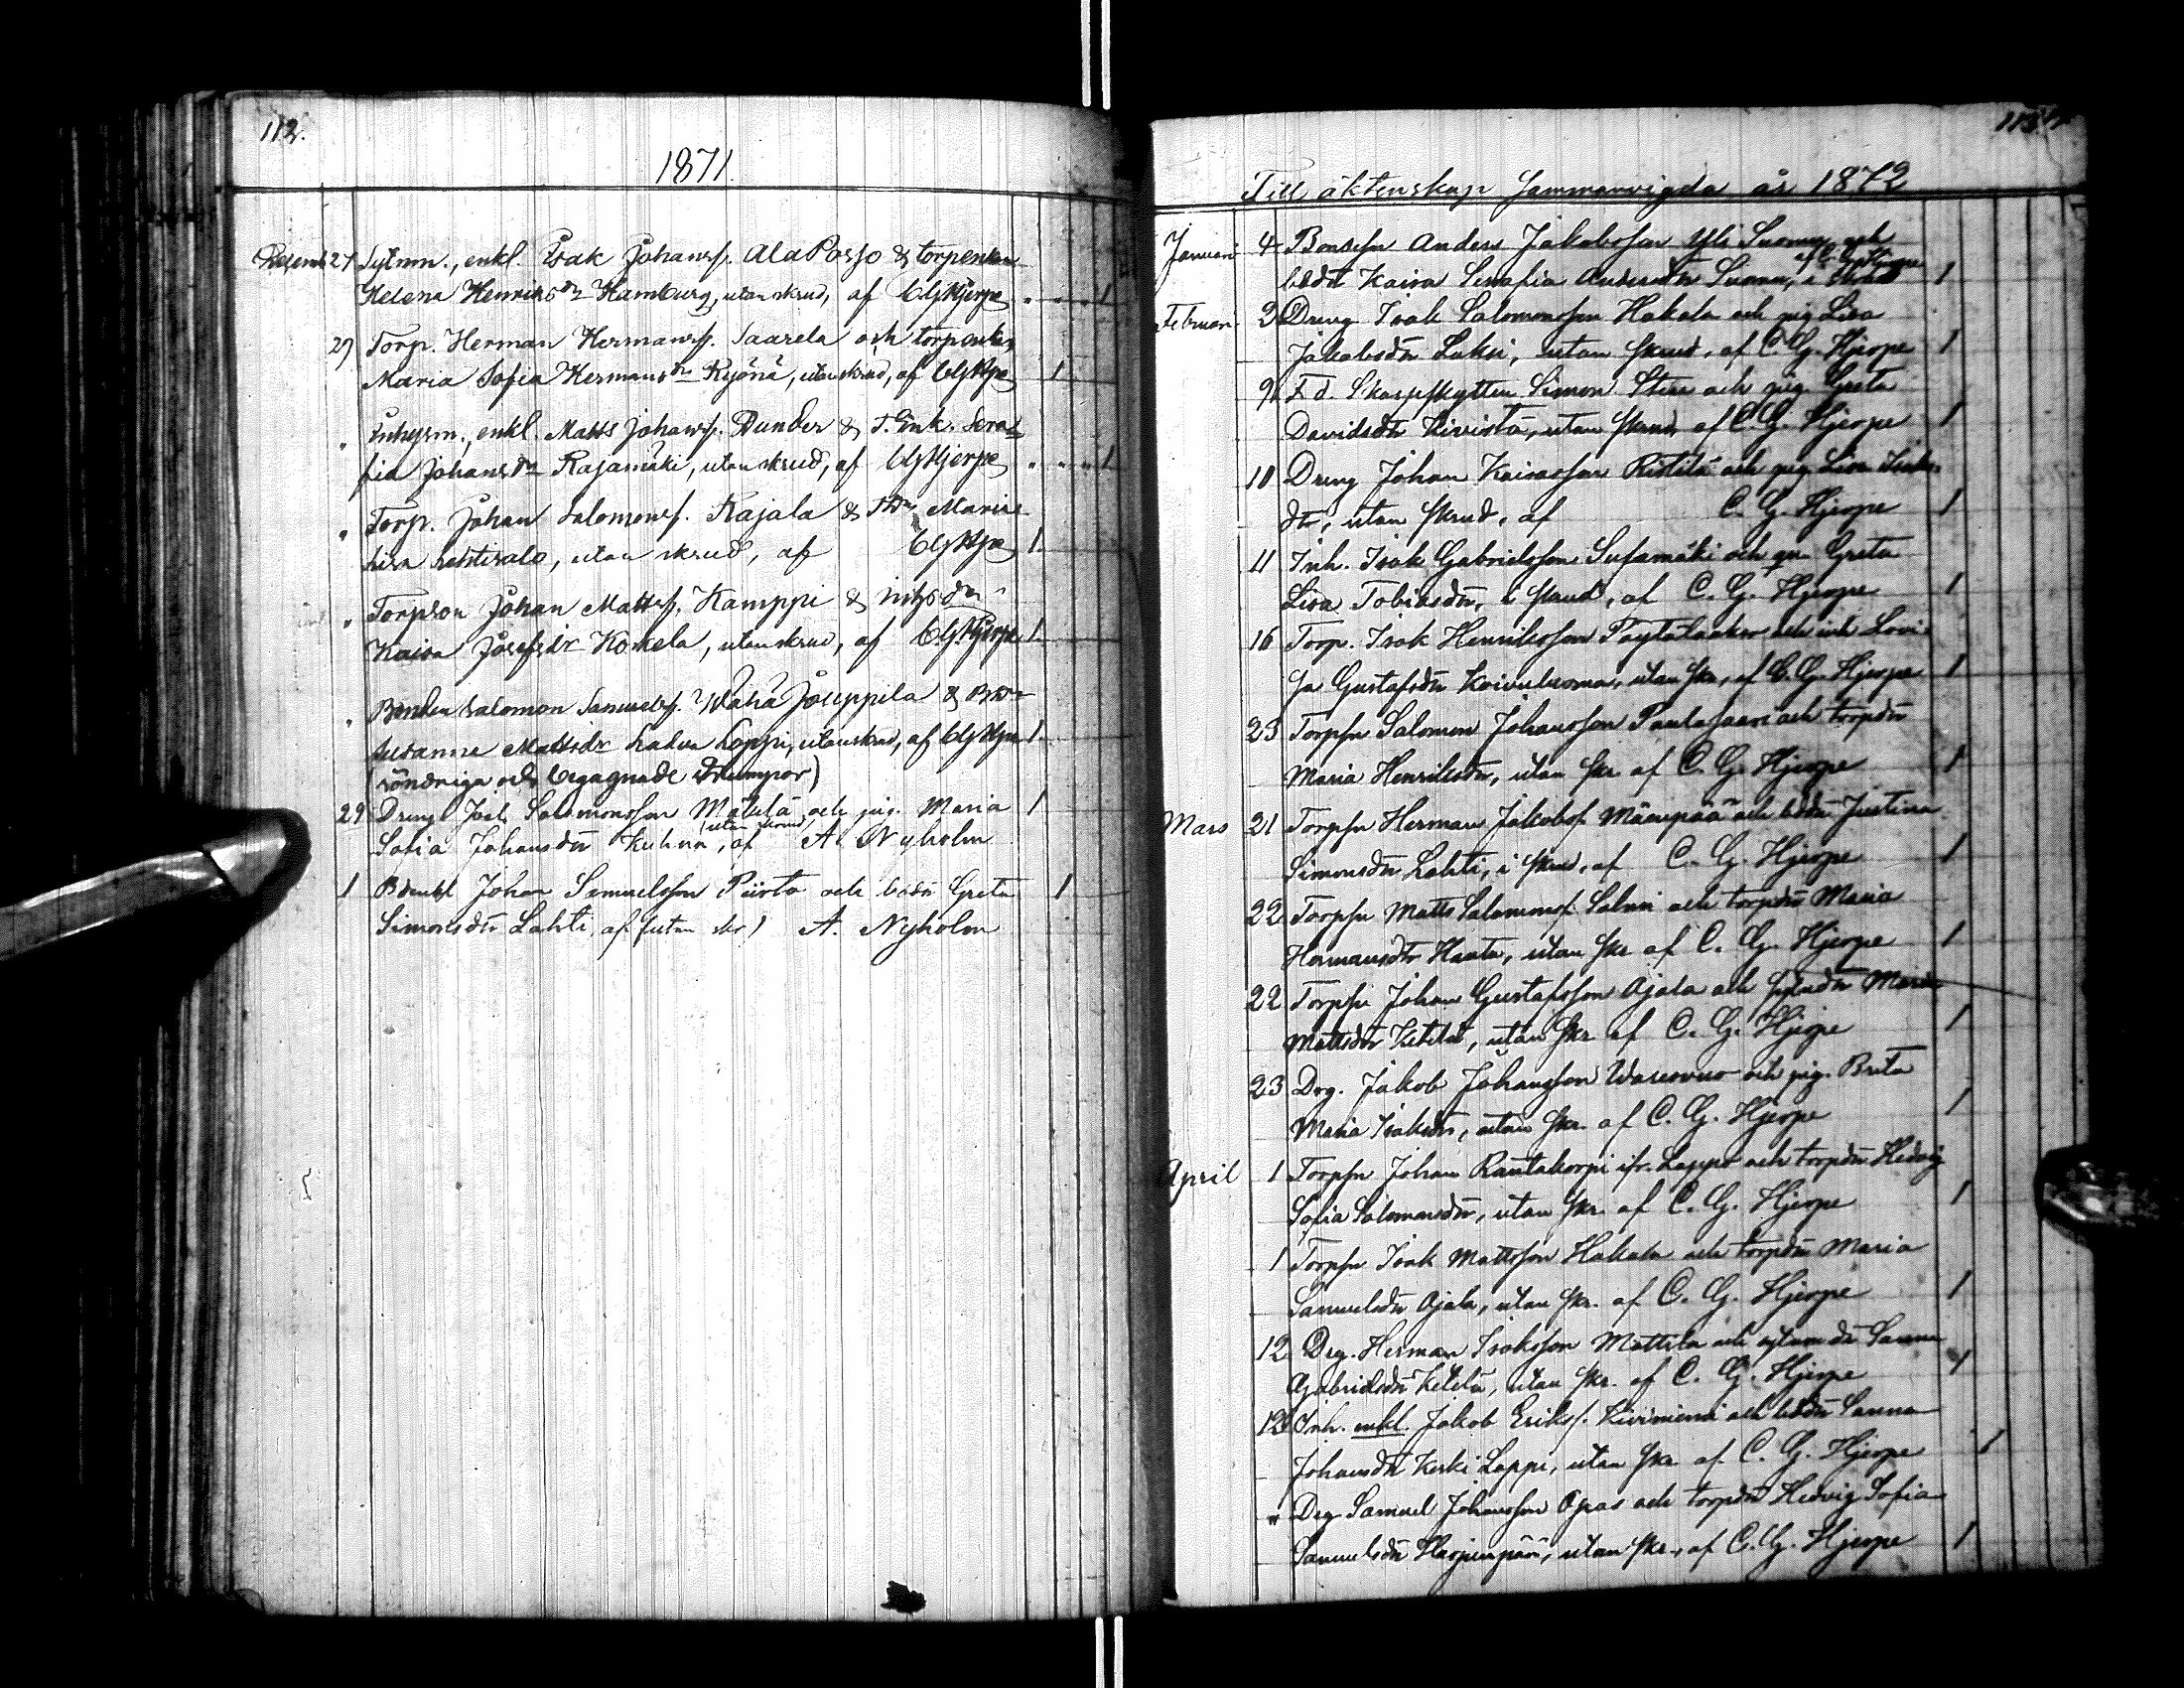 112.
1871.
Decemb 27 Sytnm., enkl. Isak Johansf. AlaPosjo & torpenkan
Helena Henriksdr Hamburg, utan skrud, af CGHjerpe " " " 1
27 Torp. Herman Hermansf. Saarela och torpenkn
Maria Sofia Hermansdr Kyönä, utan skrud, af CGHjpe 1
" Inhysm., enkl. Matts Johansf. Dunder & T. Enk. Sera-
fia Johansdr Rajamäki, utan skrud, af CGHjerpe " " " 1
" Torp. Johan Salomonsf. Kajala & Tdr Maria
Lisa Lehtisalo, utan skrud, af CGHjpe 1.
" Torpson Johan Mattsf. Kamppi &
Kaisa Josefsdr Kokela, utan skrud, af C.G.Hjerpe 1.
" Bonden Salomon Samuelsf. Wäha Joseppila &
Susanna Mattsdr Ladva Loppi, utan skrud, af CGHjpe 1.
(söndriga och begagnade)
29 Dreng Joel Salomonsson Mäkelä och pig. Maria 1
Sofia Johansdtr Kuhna, (utan skrud) af A. Nyholm
1 Bdenkl Johan Samuelsson Piirto och bddr Greta 1
Simonsdtr Lahti, af (utan skr) A. Nyholm
113
Till äktenskap Sammanvigda år 1872
Januari 4 Bondeson Anders Jakobsson Yli Suomu och
bddt Kaisa Serafia Andersdtr Suomu, i skrud af C. G. Hjerpe 1
Februari 2 Dreng Isak Salomonsson Hakala och pig Lisa
Jakobsdtr Luksi, utan skrud, af C. G. Hjerpe 1
9 F. d. Skarpskytten Simon Sten och pig. Greta
Davidsdtr Kivistö, utan skrud, af C. G. Hjerpe 1
10 Dreng Johan Kaisasson Ristilä och pig Lisa Isaks-
dtr, utan skrud, af C. G. Hjerpe 1
11 Inh. Isak Gabrielsson Susamäki och qn Greta
Lisa Tobiasdtr, i skrud, af C. G. Hjerpe 1
16 Torp. Isak Henriksson Pöytälaakso och inh Lovi-
sa Gustafsdtr Koivuluoma, utan skr, af C. G. Hjerpe 1
23 Torpsn Salomon Johansson Pantasaari och torpdtr
Maria Henriksdtr, utan skr. af C. G. Hjerpe 1
Mars 21 Torpsn Herman Jakobsf. Mäenpää och bddtr Justina
Simonsdtr Lahti, i skrud, af C. G. Hjerpe 1
22 Torpsn Matts Salomonsf. Salmi och torpdtr Maria
Hermansdtr Hauta, utan skr af C. G. Hjerpe 1
22 Torpsn Johan Gustafsson Ojala och Maria
Mattsdtr Ketelä, utan skr af C. G. Hjerpe 1
23 Drg. Jakob Johansson Wasconvuo och pig. Brita
Maria Isaksdtr, utan skr. af C. G. Hjerpe 1
April 1 Torpsn Johan Rautakorpi ifr. Lappo och torpdtr Hedvig
Sofia Salomonsdtr, utan skr. af C. G. Hjerpe 1
1 Torpsn Isak Mattsson Hakala och torpdtr Maria
Samuelsdtr Ojala, utan skr. af C. G. Hjerpe 1
12 Drg. Herman Isaksson Mattila och sytnm dtr Sanna
Gabrielsdtr Ketelä, utan skr. af C. G. Hjerpe 1
13 Inh. enkl. Jakob Eriksf. Kiviniemi och bddtr Sanna
Johansdtr Keski Loppi, utan skr af C. G. Hjerpe 1
" Drg Samuel Johansson Opas och torpdtr Hedvig Sofia
Samuelsdtr Harjunpää, utan skr. af C. G. Hjerpe 1